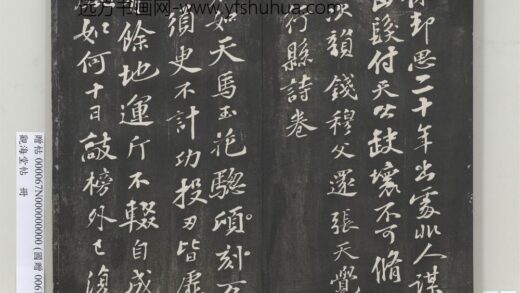 远方书画网-www.yfshuhua.com
却思二十年出處非人謀
髮付天公缺壞不可脩
次韻錢穆父還張天覺
行縣詩卷
如天馬玉花驄頃刻万
須臾不計功投刃皆虛
餘地運斤不輟自成
如何十日敲榜外已復
贈帖 000067N000000000 (國贈 006
觀海堂帖 冊